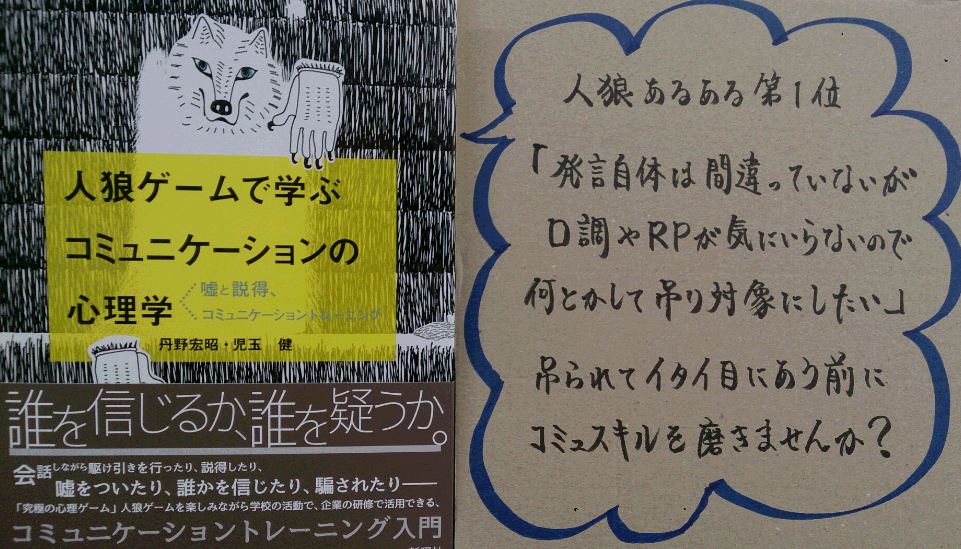 人狼ゲームで学ぶ
コミュニケーションの
心理学
嘘と説得、
コミュニケーショントレーニング
丹野宏昭・児玉 健
誰を信じるか、誰を疑うか。
会話しながら駆け引きを行ったり、説得したり、
嘘をついたり、誰かを信じたり、騙されたり――
「究極の心理ゲーム」人狼ゲームを楽しみながら学校の活動で、企業の研修で活用できる、
コミュニケーショントレーニング入門
人狼あるある第1位
「発言自体は間違っていないが
口調やRPが気にいらないので
何とかして吊り対象にしたい」
吊られてイタイ目にあう前に
コミュスキルを磨きませんか?